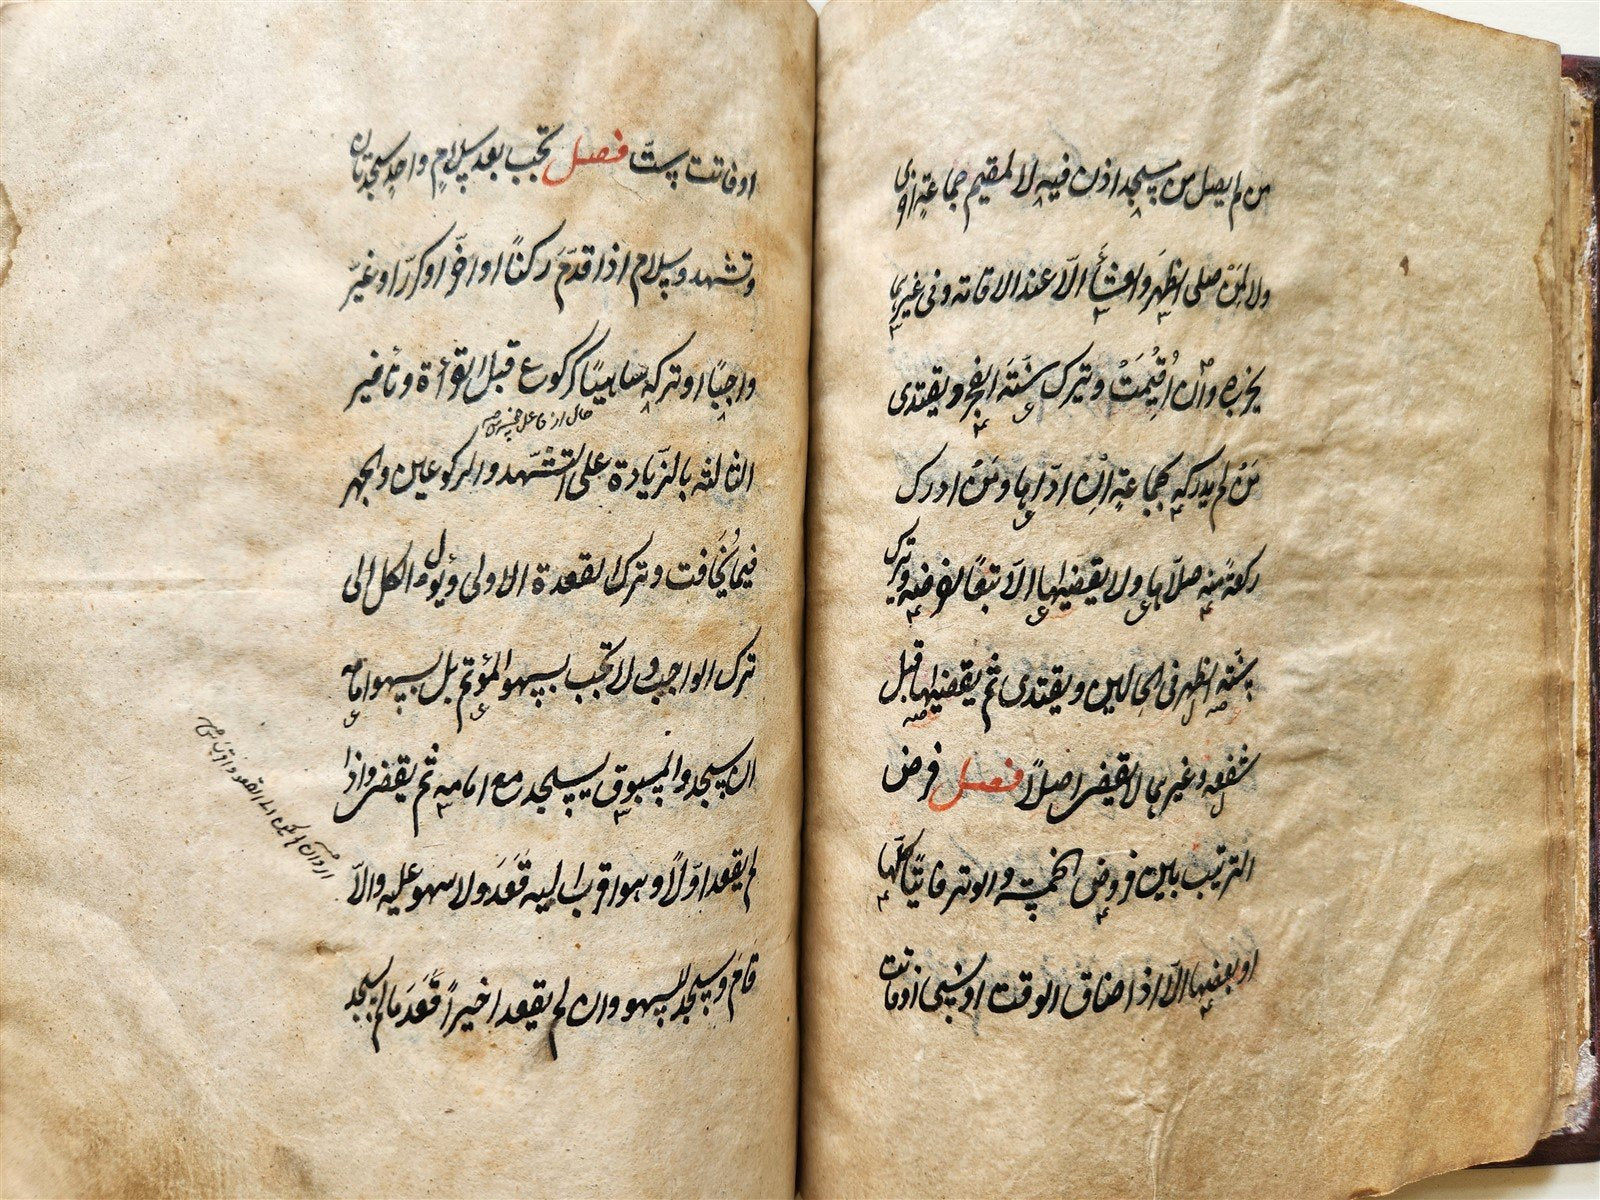 من لم يصل من مسجد اذن فيه لا لمقيم جماعة اخرى
ولا لمن صلى الظهر والعشأ الّا عند الاقامة وفي غيرهما
يخرج وان اُقيمَتْ ويترك سنّة الفجر ويقتدى
مَنْ لم يدركه بجماعةٍ اِن ادّاها ومَنْ ادرك
ركعةً منه صلّاها ولا يقضيها الّا تبعًا لفرضه وترك
سنّة الظهر فى الحالين ويقتدى ثم يقضيها قبل
شفعه وغيرهما لا يقضى اصلاً فصل فرض
الترتيب بين فروض الخمسة والوتر فايتًا كلّها
او بعضها الّا اذا ضاق الوقت او نسى او فاتت
او فاتت ستّ فصل تجب بعد سلامٍ واحدٍ سجدتان
وتشهد وسلام اذا قدّمَ ركنًا او اخّر او كرّر او غيّر
واجبًا او تركه ساهيًا كركوع قبل القرأة وتأخير
حال از فاعل
الثالثة بالزّيادة على التشهد والركوعين والجهر
فيما يُخَافت وترك القعدة الاولى ويؤول الكل الى
ترك الواجب ولا تجب بسهو المؤتم بل بسهو امامه
ان سجد والمسبوق يسجد مع امامه ثم يقضى واذا
لم يقعد اوّلاً وهو اقرب اليه قَعَدَ ولا سهو عليه والّا
قام وسجد للسهو وان لم يقعد اخيراً قَعَدَ مالم يسجد